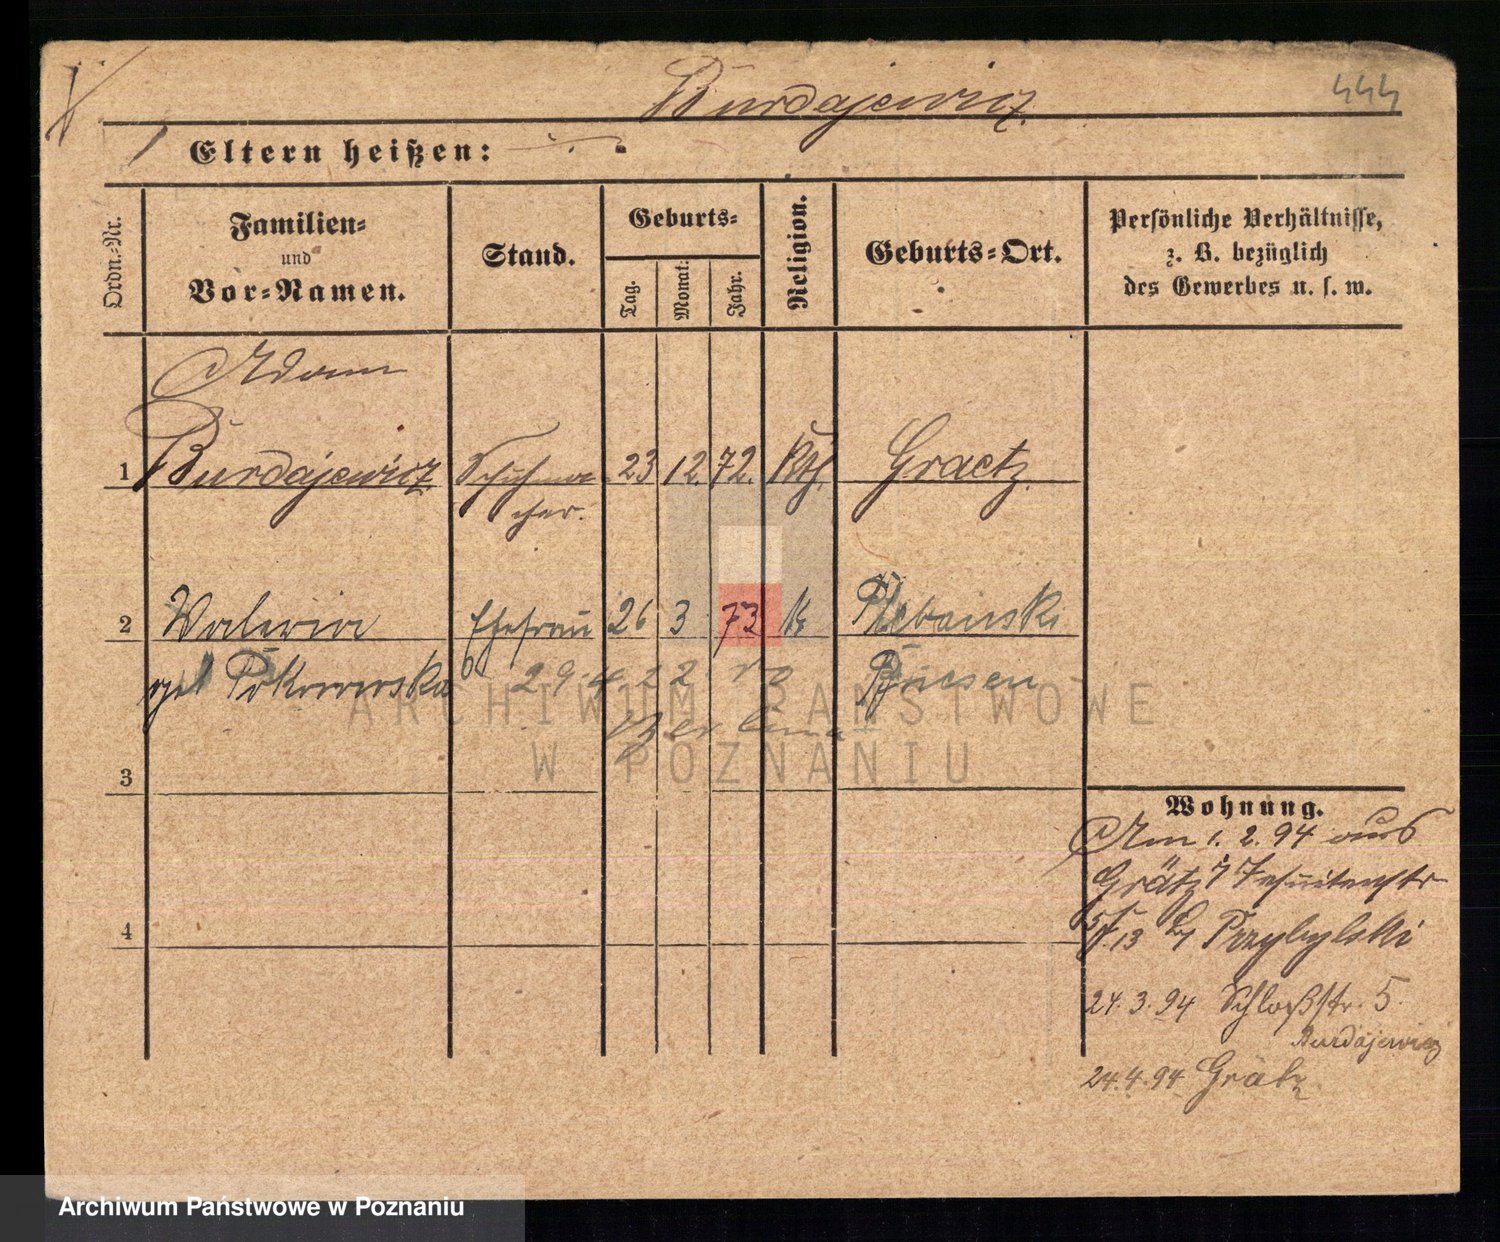 Burdajewicz
444
Eltern heißen:
Ordn.-Nr.
Familien-
und
Vor-Namen.
Stand.
Geburts-
Tag.
Monat.
Jahr.
Religion.
Geburts-Ort.
Persönliche Verhältnisse,
z. B. bezüglich
des Gewerbes u. s. w.
Adam
1 Burdajewicz Schuhma 23 12. 72. Kth. Graetz.
cher.
2 Waleria Ehefrau 26 3 73 k
geb Pokrowska
29 4 22
Briesen
3
4
Wohnung.
Am 1. 2. 94 aus
Grätz Jesuitenstr
13 Przybylski
24. 3. 94 Schloßstr. 5.
Burdajewicz
24. 4. 94 Grätz
ARCHIWUM PAŃSTWOWE
W POZNANIU
Archiwum Państwowe w Poznaniu